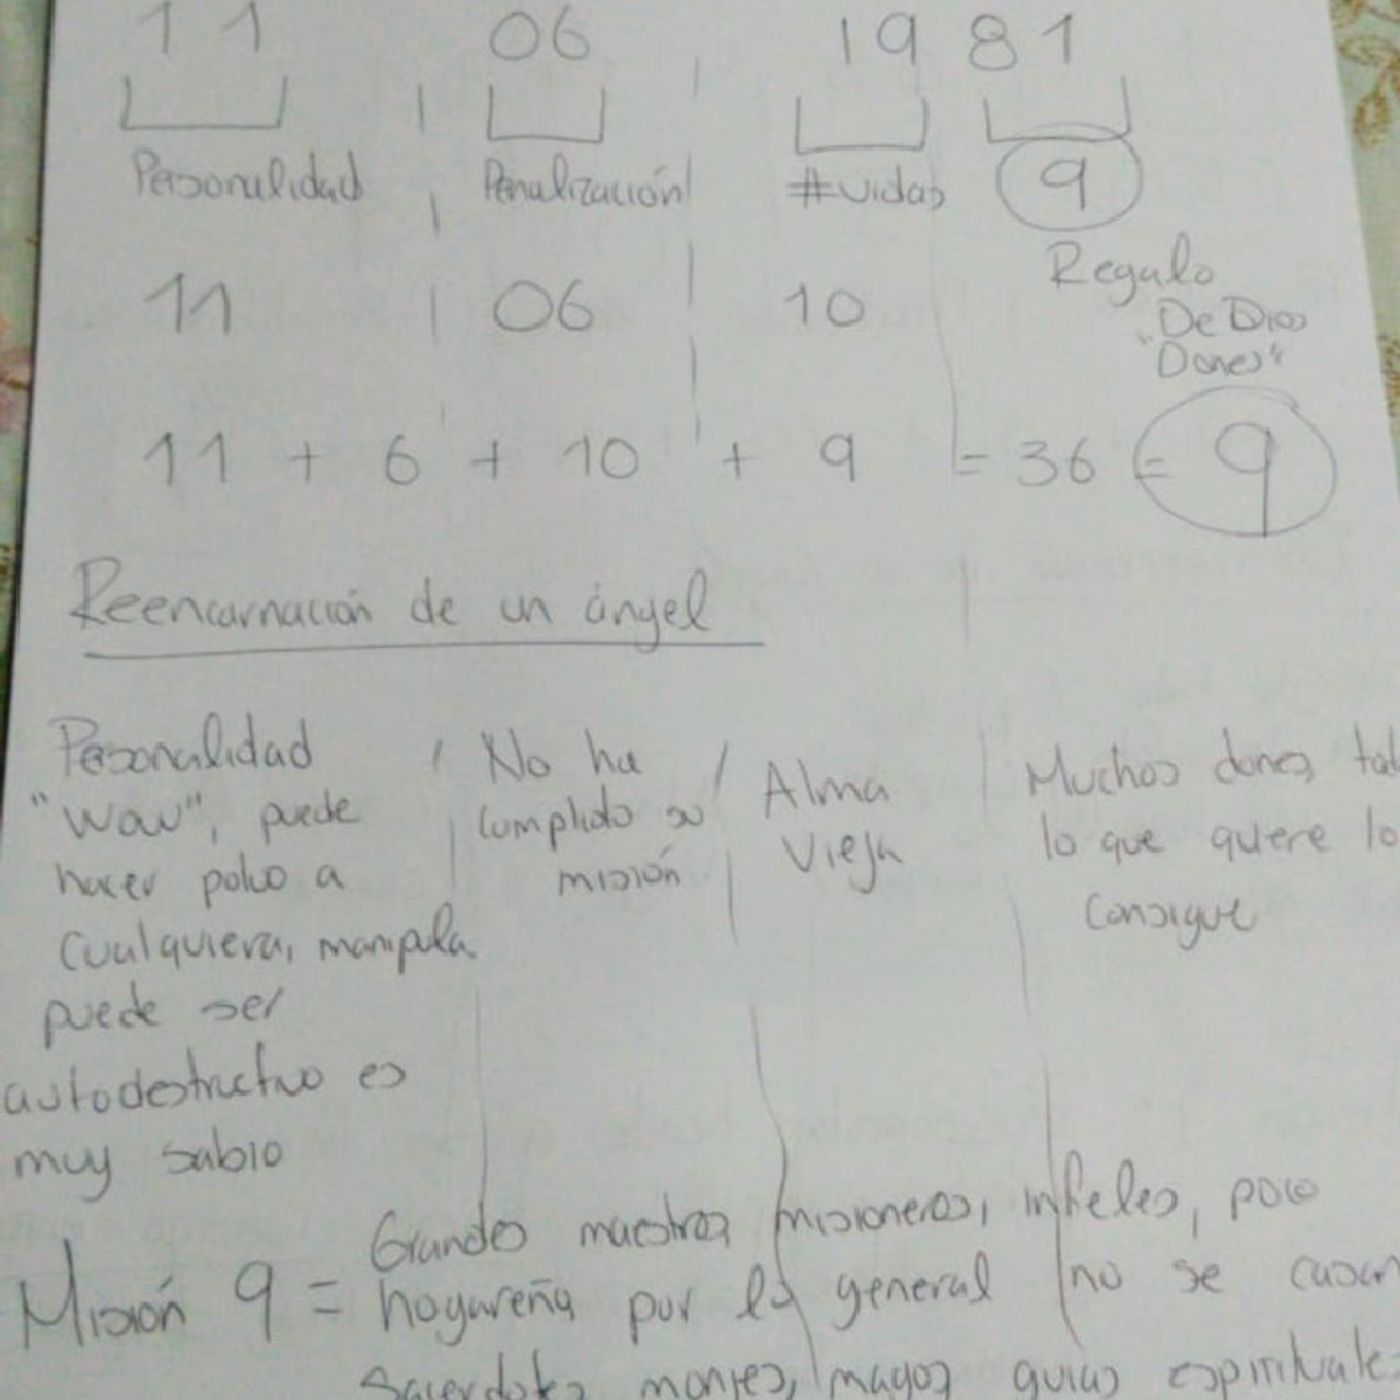 11 06 19 81
Personalidad Penalización #vidas 9
Regalo
De Dios
"Dones"
11 06 10
11 + 6 + 10 + 9 = 36 = 9
Reencarnación de un ángel
Personalidad
"wow", puede
hacer polvo a
cualquiera, manipula.
puede ser
autodestructivo es
muy sabio
No ha
cumplido su
misión
Alma
Vieja
Muchos dones,
lo que quiere lo
consigue
Misión 9 =
Grandes maestros, misioneros, infieles, poco
hogareña por lo general no se casan
Sacerdotes, monjes, magos guias espirituale